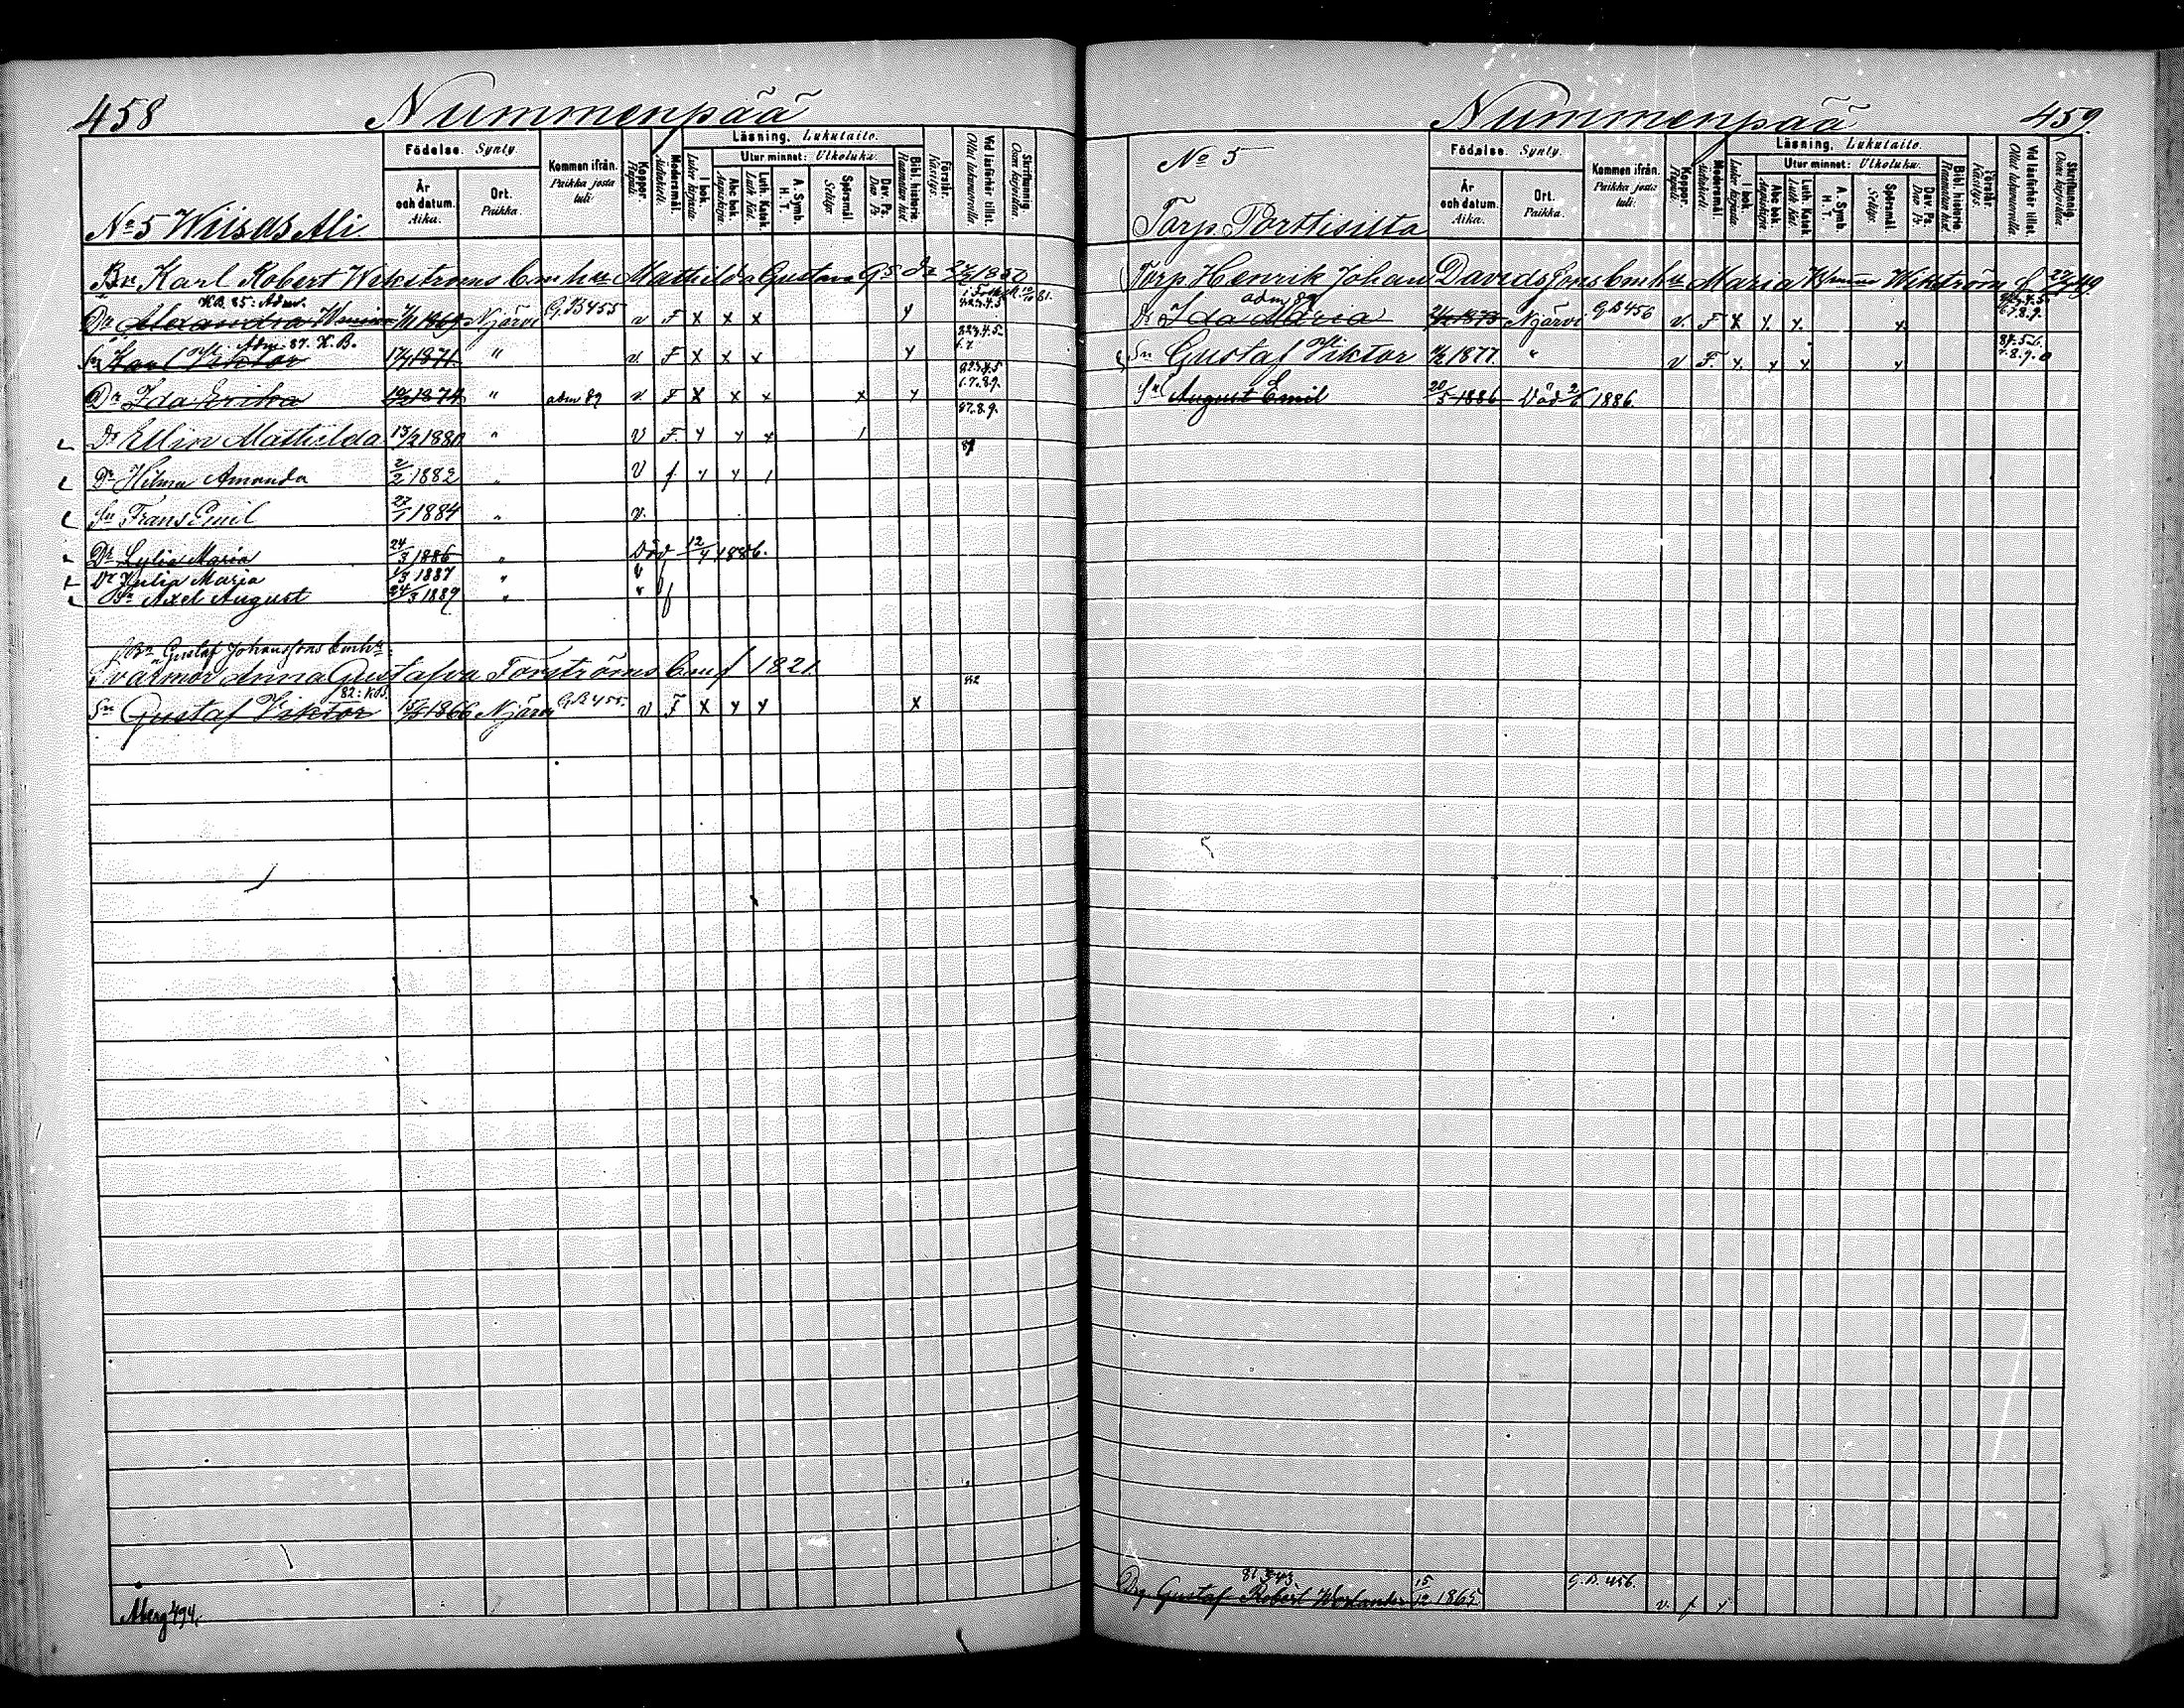 458 Nummenpää
Födelse. Synty.
Kommen ifrån. Paikka josta tuli:
Koppor. Rupuli.
Modersmål. Äidinkieli.
Läsning. Lukutaito.
I bok. Lukee kirjasta.
Utur minnet: Ulkoluku.
Abc bok. Aapiskirja.
Luth. Katek. Luth. Kat.
A. Symb. H. T.
Spörsmål Selitys.
Dav. Ps. Dav. Ps.
Bibl. historia. Raamatun hist.
Förstår. Käsitys.
Vid läsförhör tillst. Ollut lukuvuorolla.
Skriftkunnig. Osaa kirjoittaa.
År och datum. Aika.
Ort. Paikka.
No 5 Wiisas Ali
Bn Karl Robert Wikströms Hustru Mathilda Gustava 1850
K.B. 85: Adm.
Dr Alexandra 1869 Njärvi G.B 455 v F x x x y
Adm. 87. K.B.
Sn Karl Viktor 17/4 1871 " v F x x x y
Dr Ida Erika 1874 " adm 89 v F x x x x y
Dr Ellin Mathilda 13/2 1880 " v F. y y y 1
Dr Hilma Amanda 2/2 1882 " v f. y y 1
Sn Frans Emil 27/1 1884 " v.
Dr Lylia Maria 24/3 1886 " Död 12/4 1886.
Dr Julia Maria 1/3 1887 " v f
Sn Axel August 24/3 1889 " v f
Gustaf Johanssons
Svärmor Anna Gustafva Forströms f 1821.
82: K.B.
Sn Gustaf Viktor 1866 Njärvi G.B 455. v F x y y x
Aberg 494.
Nummenpää 459.
No 5
Födelse. Synty.
Kommen ifrån. Paikka josta tuli:
Koppor. Rupuli.
Modersmål. Äidinkieli.
Läsning. Lukutaito.
I bok. Lukee kirjasta.
Utur minnet: Ulkoluku.
Abc bok. Aapiskirja.
Luth. Katek. Luth. Kat.
A. Symb. H. T.
Spörsmål Selitys.
Dav. Ps. Dav. Ps.
Bibl. historia. Raamatun hist.
Förstår. Käsitys.
Vid läsförhör tillst. Ollut lukuvuorolla.
Skriftkunnig. Osaa kirjoittaa.
År och datum. Aika.
Ort. Paikka.
Torp Porttisilta
Torp. Henrik Johan Davidssons Maria Wikström f 49.
adm 89
Dr Ida Maria 1873 Njärvi G.B 456 v. F x y. y. y
Sn Gustaf Viktor 1877 " v F. y. y y y
Sn August Emil 20/5 1886 Död 2/6 1886.
Drg Gustaf Robert 15/12 1865 G.B. 456. v. f y